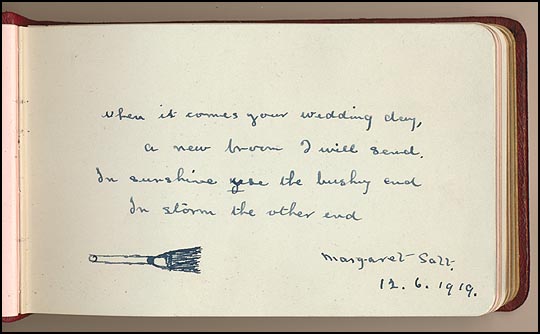 when it comes your wedding day,
a new broom I will send.
In sunshine use the bushy end
In storm the other end
Margaret Salt.
12.6.1919.